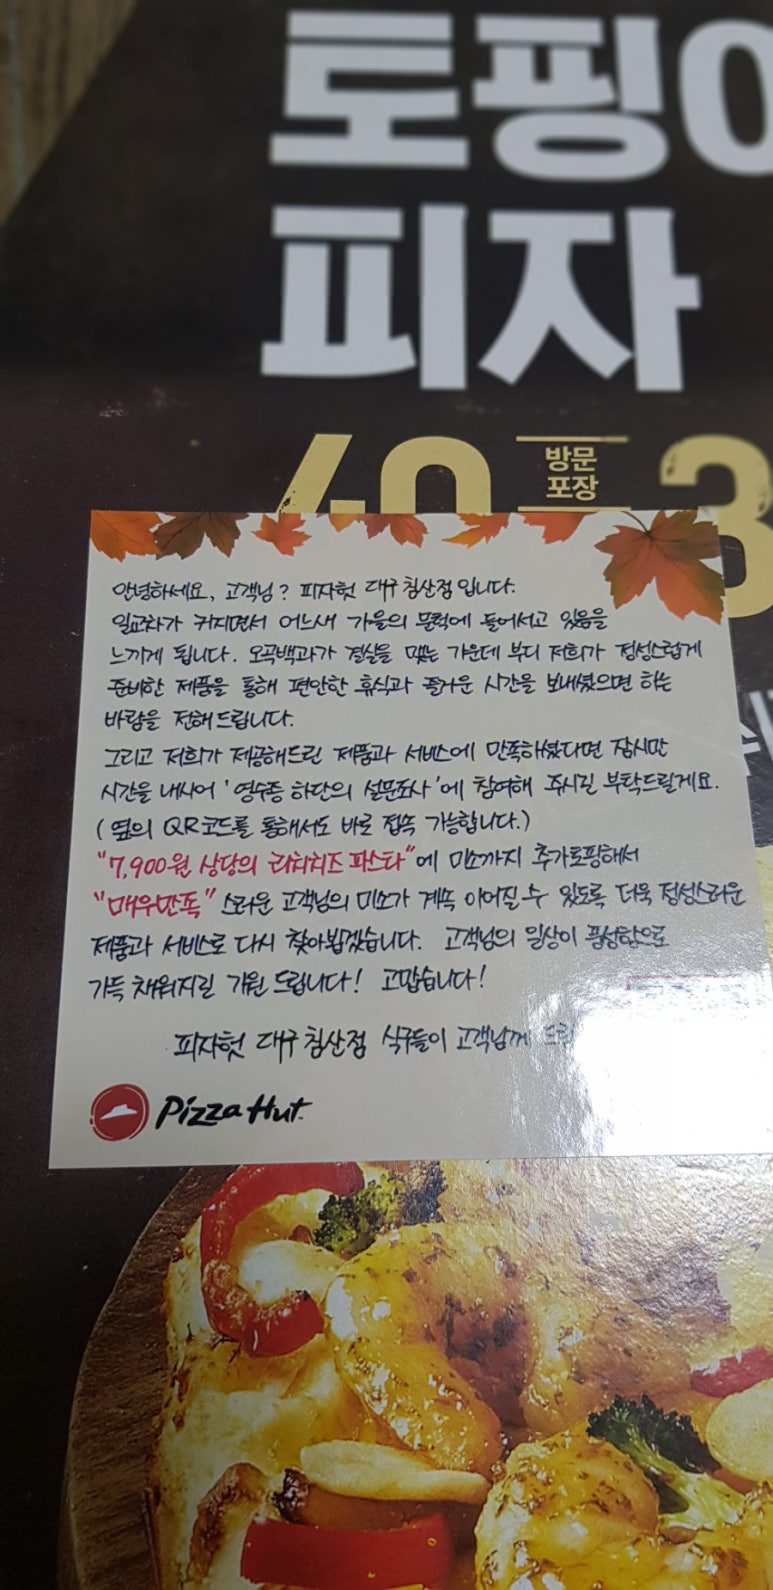 토핑
피자
40
방문
포장
3
안녕하세요, 고객님? 피자헛 대구침산점입니다.
일교차가 커지면서 어느새 가을의 문턱에 들어서고 있음을
느끼게 됩니다. 오곡백과가 결실을 맺는 가운데 부디 저희가 정성스럽게
준비한 제품을 통해 편안한 휴식과 즐거운 시간을 보내셨으면 하는
바람을 전해드립니다.
그리고 저희가 제공해드린 제품과 서비스에 만족하셨다면 잠시만
시간을 내시어 '영수증 하단의 설문조사'에 참여해 주시길 부탁드릴게요.
(옆의 QR코드를 통해서도 바로 접속 가능합니다.)
"7,900원 상당의 리치치즈 파스타"에 미소까지 추가토핑해서
"매우만족"스러운 고객님의 미소가 계속 이어질 수 있도록 더욱 정성스러운
제품과 서비스로 다시 찾아뵙겠습니다. 고객님의 일상이 풍성함으로
가득 채워지길 기원 드립니다! 고맙습니다!
피자헛 대구침산점 식구들이 고객님께
Pizza Hut